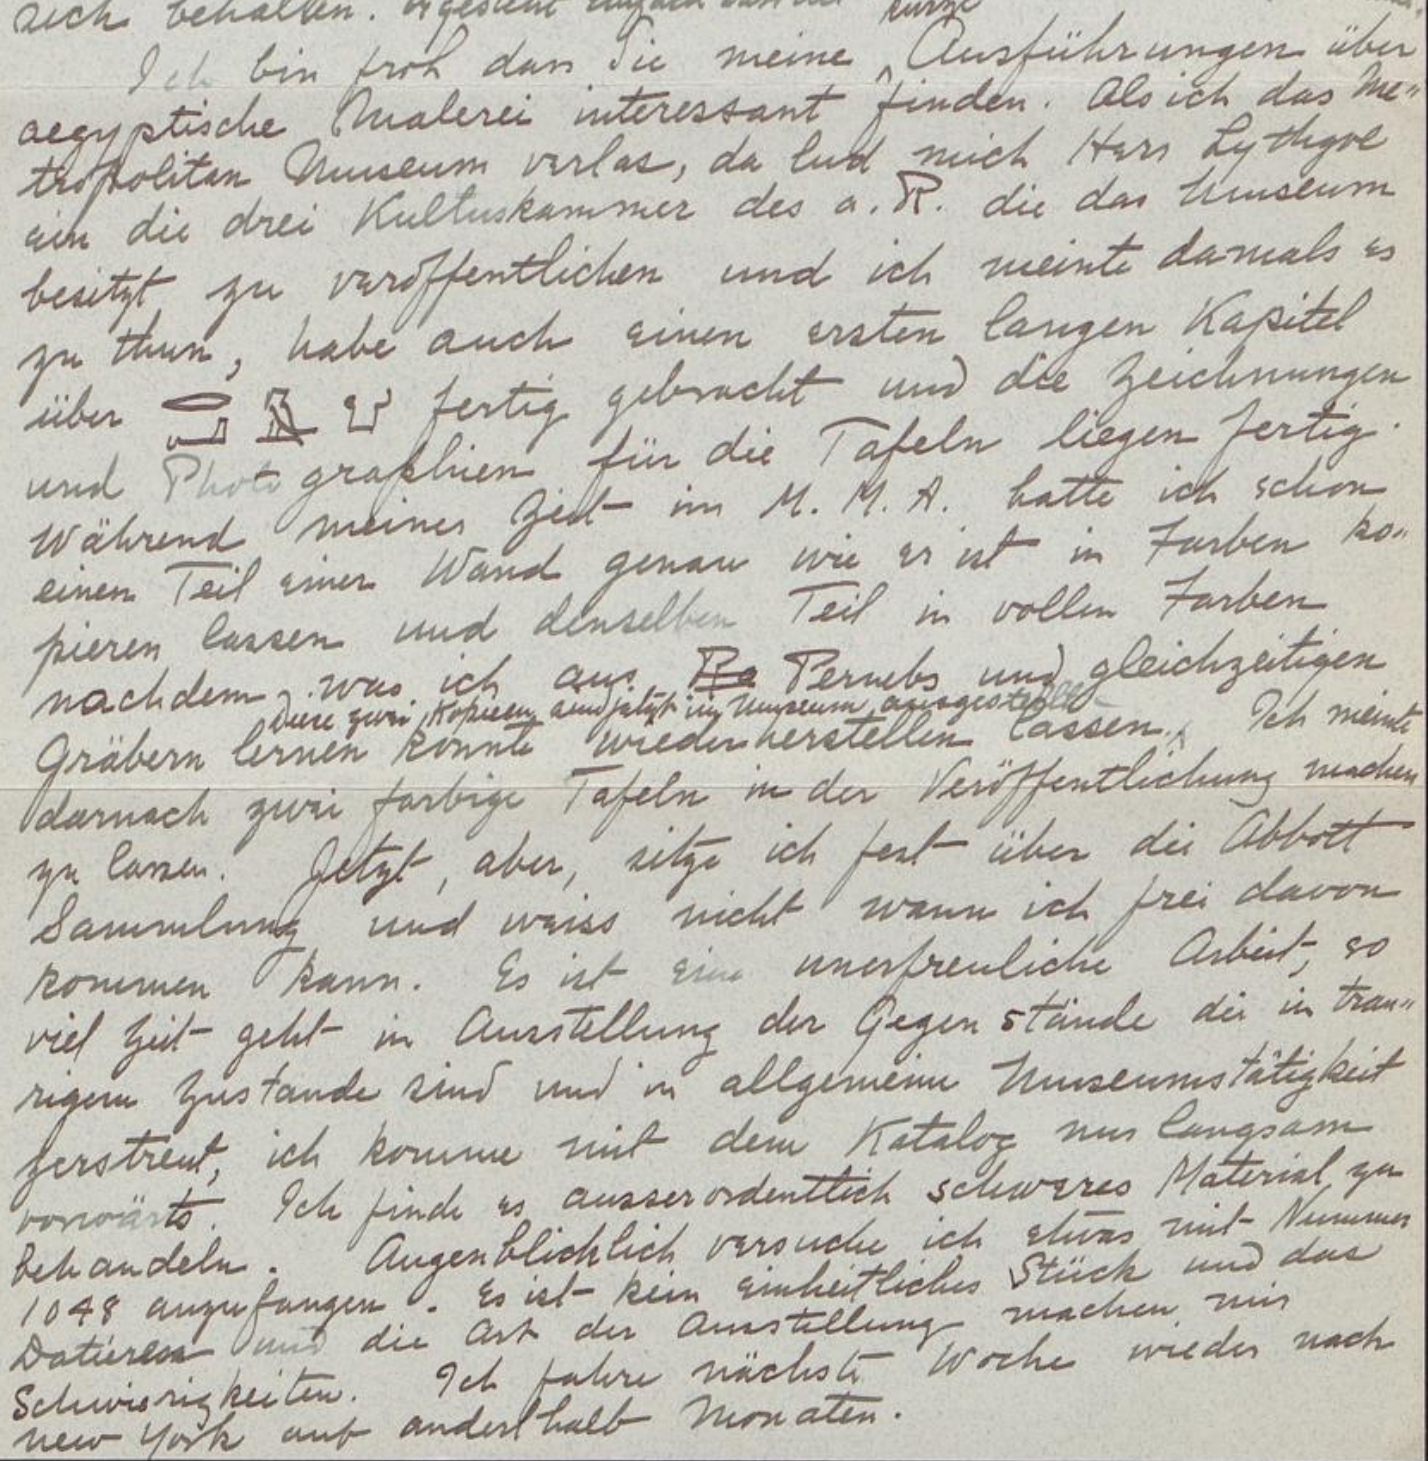 sich behalten.
kurze
Ich bin froh dass Sie meine Ausführungen über
aegyptische Malerei interessant finden. Als ich das Me-
tropolitan Museum verlas, da lud mich Herr Lythgoe
ein die drei Kultuskammer des a. R. die das Museum
besitzt zu veröffentlichen und ich meinte damals es
zu thun, habe auch einen ersten langen Kapitel
über 𓂋𓂝 𓀼 𓂓 fertig gebracht und die Zeichnungen
und Photographien für die Tafeln liegen fertig.
Während meiner Zeit im M. M. A. hatte ich schon
einen Teil einer Wand genau wie er ist in Farben ko-
pieren lassen und denselben Teil in vollen Farben
nachdem was ich aus Ra Pernebs und gleichzeitigen
Diese zwei Kopieen sind jetzt im Museum ausgestellt
Gräbern lernen konnte wiederherstellen lassen. Ich meinte
darnach zwei farbige Tafeln in der Veröffentlichung machen
zu lassen. Jetzt, aber, sitze ich fest über die Abbott
Sammlung und weiss nicht wann ich frei davon
kommen kann. Es ist eine unerfreuliche Arbeit, so
viel Zeit geht in Ausstellung der Gegenstände die in trau-
rigem Zustande sind und in allgemeine Museumstätigkeit
zerstreut, ich komme mit dem Katalog nur langsam
vorwärts. Ich finde es ausserordentlich schweres Material zu
behandeln. Augenblicklich versuche ich etwas mit Nummer
1048 anzufangen. Es ist kein einheitliches Stück und das
Datieren und die Art der Ausstellung machen mir
Schwierigkeiten. Ich fahre nächste Woche wieder nach
New York auf anderthalb Monaten.